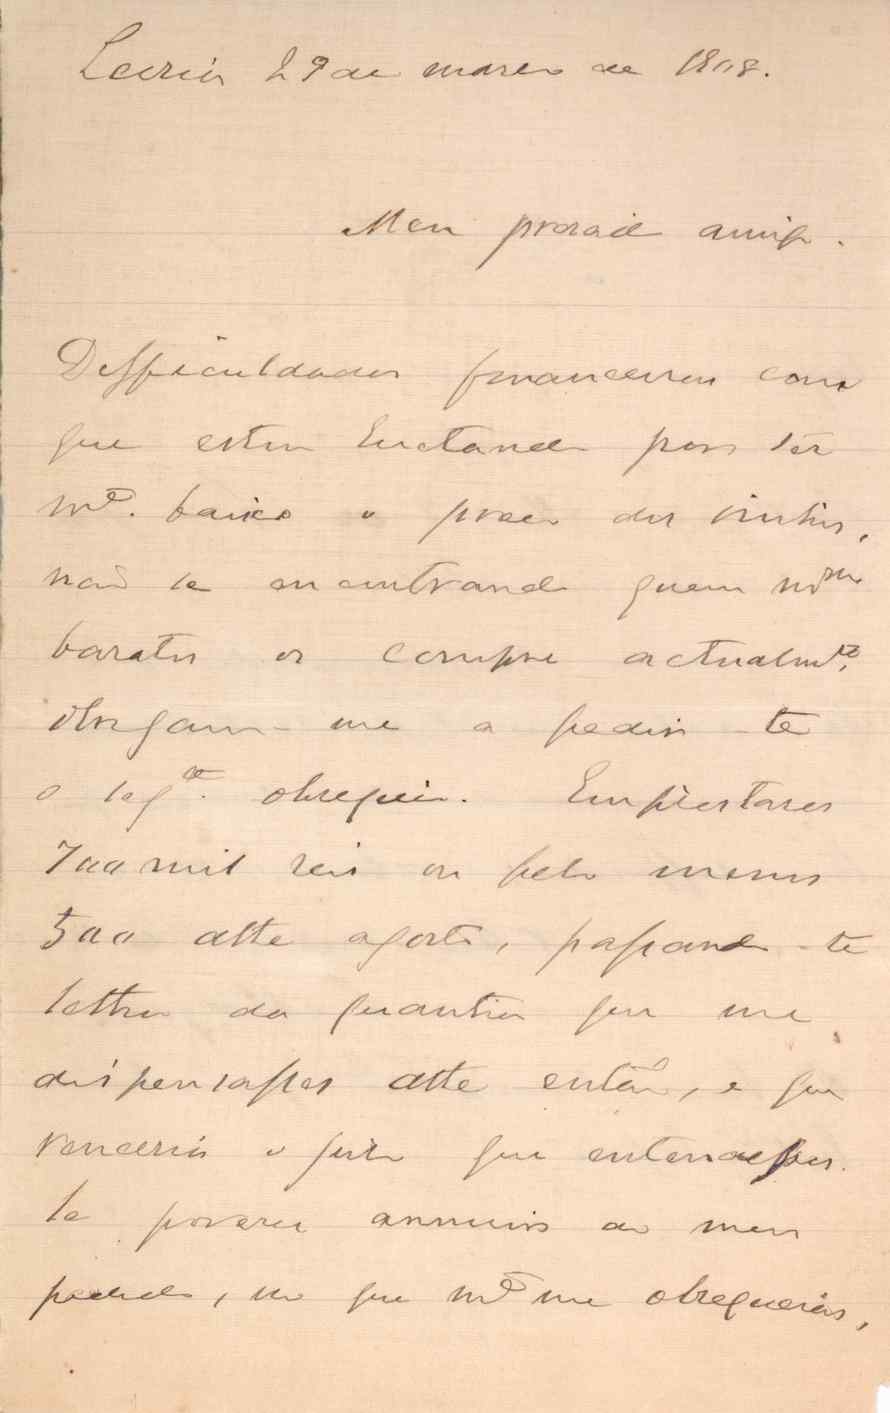 Leiria 29 de março de 1908.
Meu presado amigo.
Difficuldades financeiras com
que estou luctando por ser
mto. baixo o preço dos vinhos,
não se encontrando quem mmo
baratos os compre actualmte,
obrigam-me a pedir-te
o segte. obsequio. Emprestares
700 mil reis ou pelo menos
500 atte agosto, passando-te
lettra da quantia que me
dispensasses atte então, e que
venceria o juro que entendesses.
Se poderes annuir ao meu
pedido, no que mto me obsequeias,